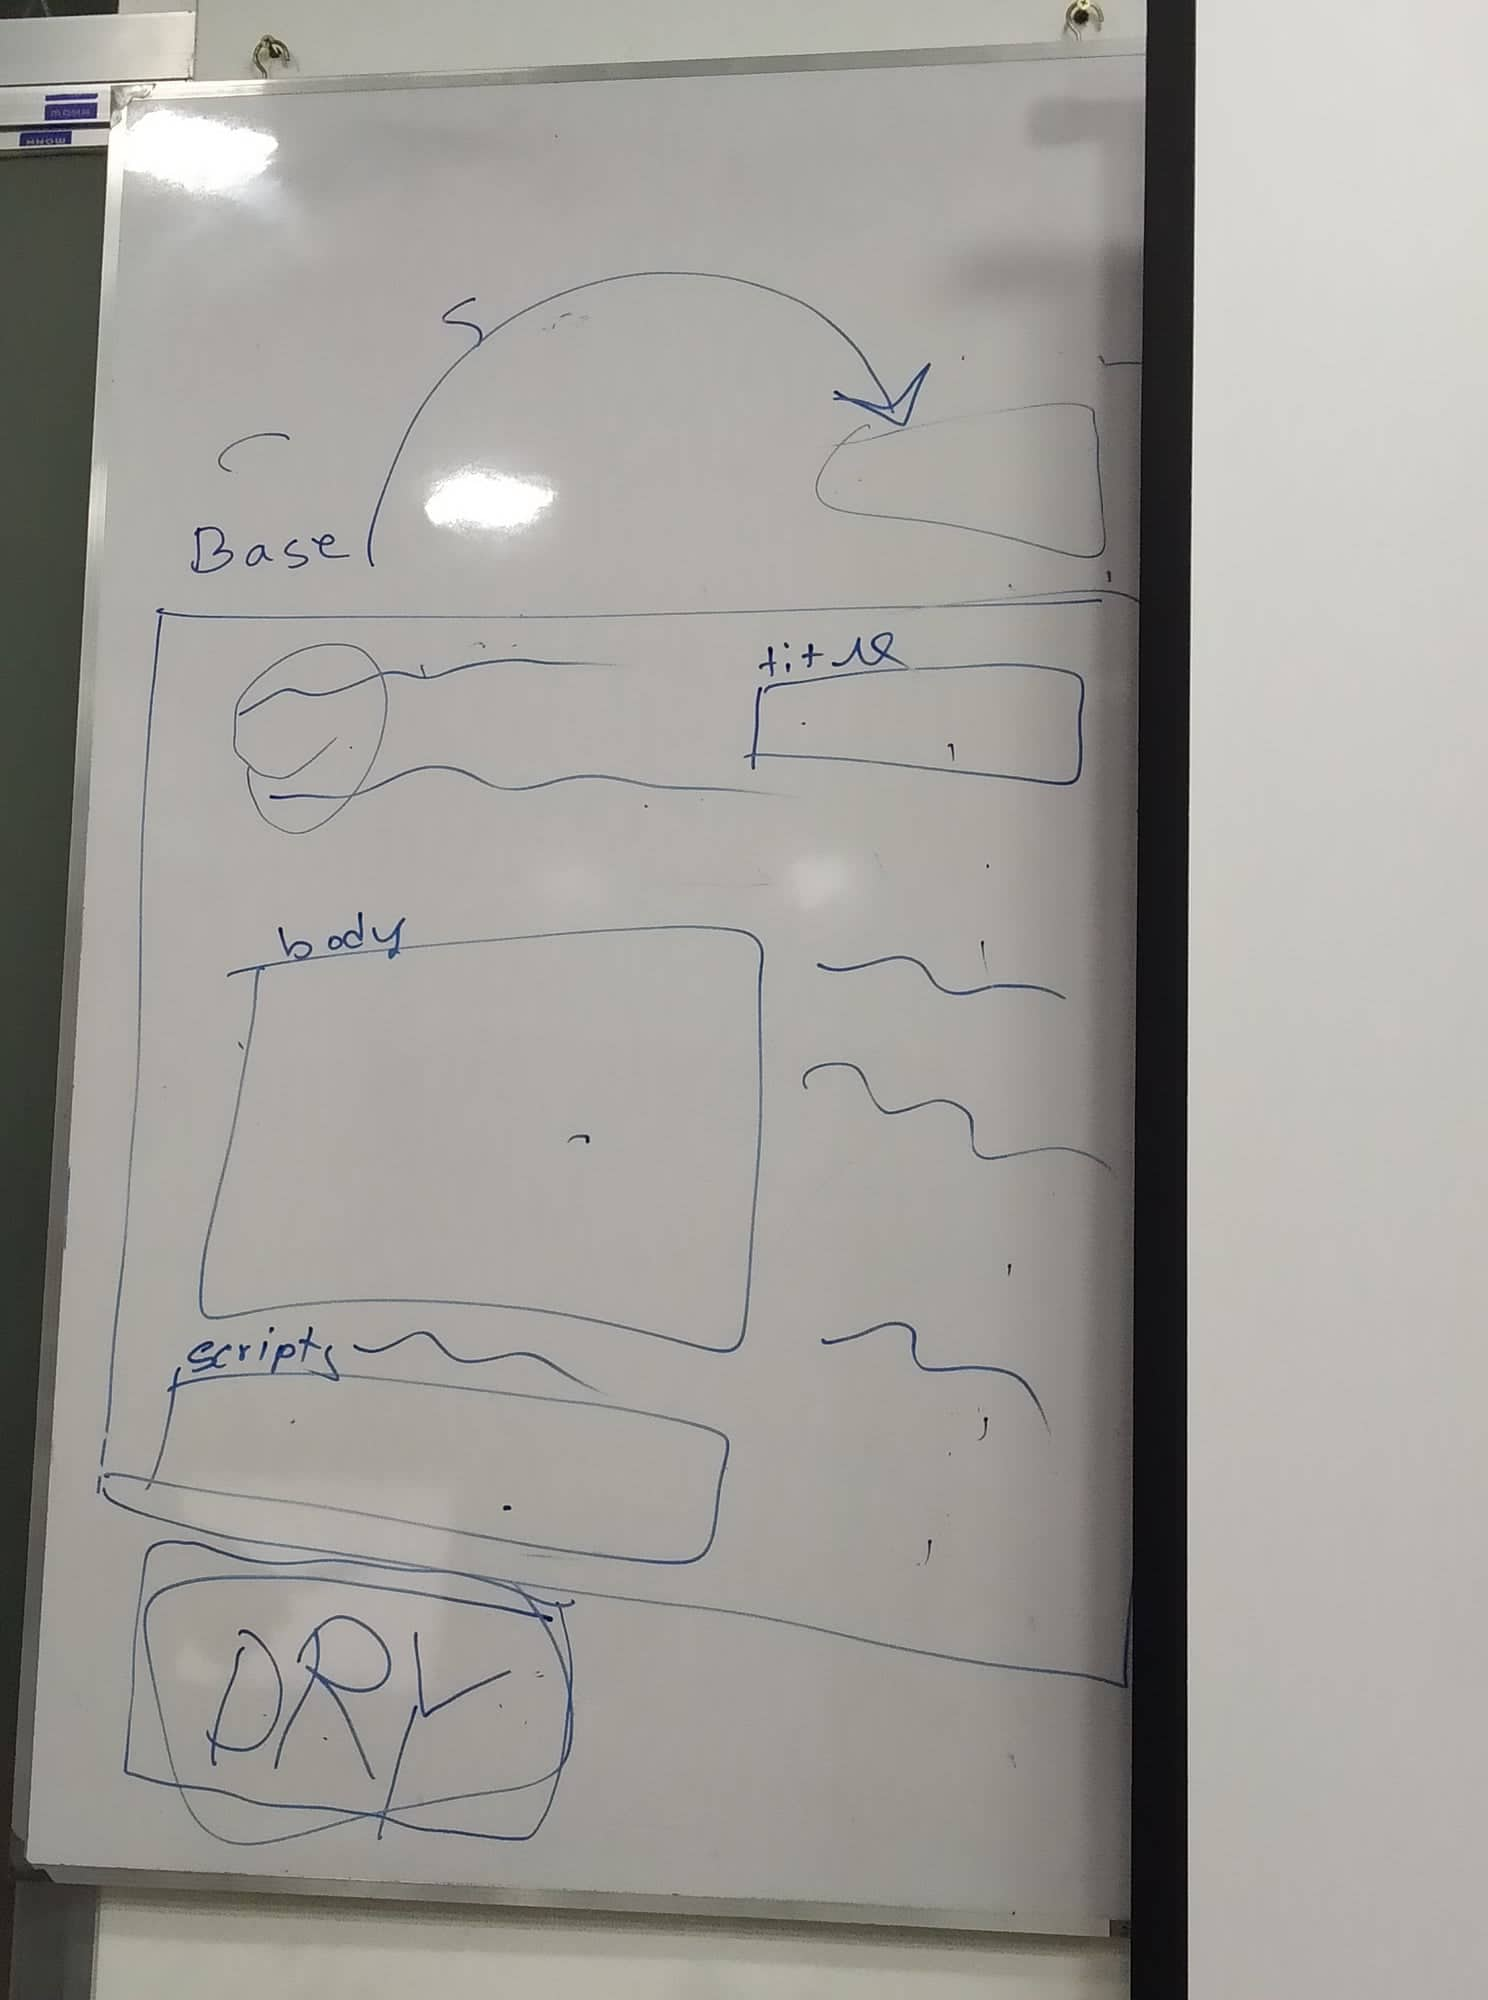 Base
title
body
scripts
DRY